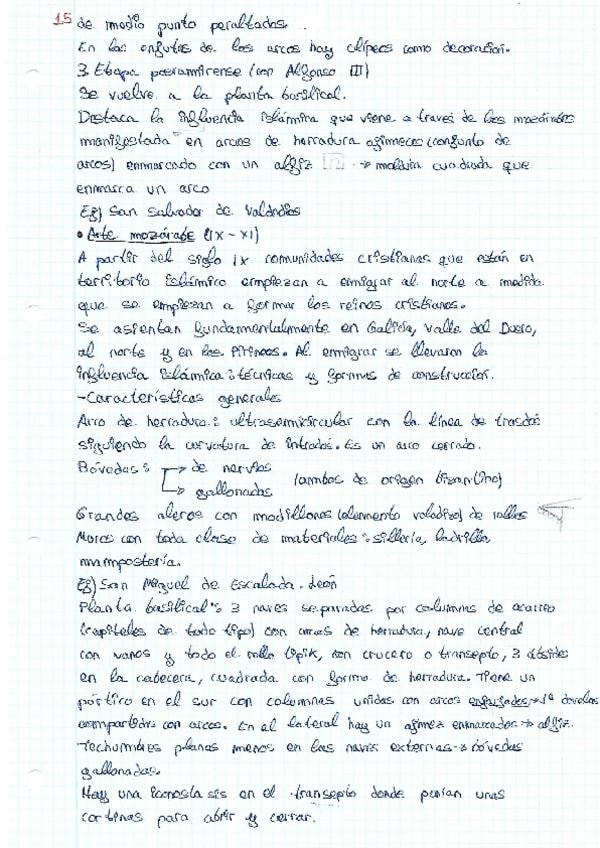 15 de medio punto peraltadas.
En las enjutas de los arcos hay clípeos como decoración.
3. Etapa posramirense (con Alfonso III)
Se vuelve a la planta basilical.
Destaca la influencia islámica que viene a través de los mozárabes
manifestada en arcos de herradura ajimeces (conjunto de
arcos) enmarcado con un alfiz → moldura cuadrada que
enmarca un arco
Ej) San Salvador de Valdediós
• Arte mozárabe (IX-XI)
A partir del siglo IX comunidades cristianas que están en
territorio islámico empiezan a emigrar al norte a medida
que se empiezan a formar los reinos cristianos.
Se asientan fundamentalmente en Galicia, valle del Duero,
al norte y en los Pirineos. Al emigrar se llevaron la
influencia islámica: técnicas y formas de construcción.
-Características generales
Arco de herradura: ultrasemicircular con la línea de trasdós
siguiendo la curvatura de intradós. Es un arco cerrado.
Bóvedas: → de nervios
→ gallonadas (ambas de origen bizantino)
Grandes aleros con modillones (elemento voladizo) de rollos
Muros con toda clase de materiales: sillería, ladrillo,
mampostería.
Ej) San Miguel de Escalada. León
Planta basilical: 3 naves separadas por columnas de acarreo
(capiteles de todo tipo) con arcos de herradura, nave central
con vanos y todo el rollo típik, con crucero o transepto, 3 ábsides
en la cabecera, cuadrada con forma de herradura. Tiene un
pórtico en el sur con columnas unidas con arcos enjarjados → 1ª dovelas
compartidas con arcos. En el lateral hay un ajimez enmarcados → alfiz.
Techumbres planas menos en las naves externas → bóvedas
gallonadas.
Hay una iconostasis en el transepto donde ponían unas
cortinas para abrir y cerrar.